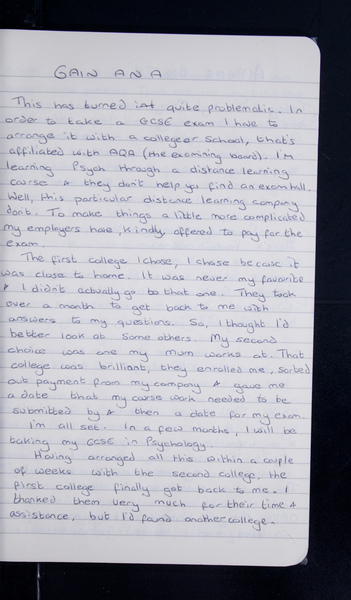 GAIN AN A
This has turned int quite problematic. In
order to take a GCSE exam I have to
arrange it with a college or School, that's
affiliated with AQA (the examining board). I'm
learning Psych through a distance learning
course & they don't help you find an exam hall.
Well, this particular distance learning company
don't. To make things a little more complicated
my employers have, kindly, offered to pay for the
exam.
The first college I chose, I chose because it
was close to home. It was never my favorite
& I didn't actually go to that one. They took
over a month to get back to me with
answers to my questions. So, I thought I'd
better look at some others. My second
choice was one my mum works at. That
college was brilliant, they enrolled me, sorted
out payment from my company & gave me
a date that my course work needed to be
submitted by & then a date for my exam.
I'm all set. In a few months, I will be
taking my GCSE in Psychology.
Having arranged all this within a couple
of weeks with the second college, the
first college finally got back to me. I
thanked them very much for their time &
assistance, but I'd found another college.